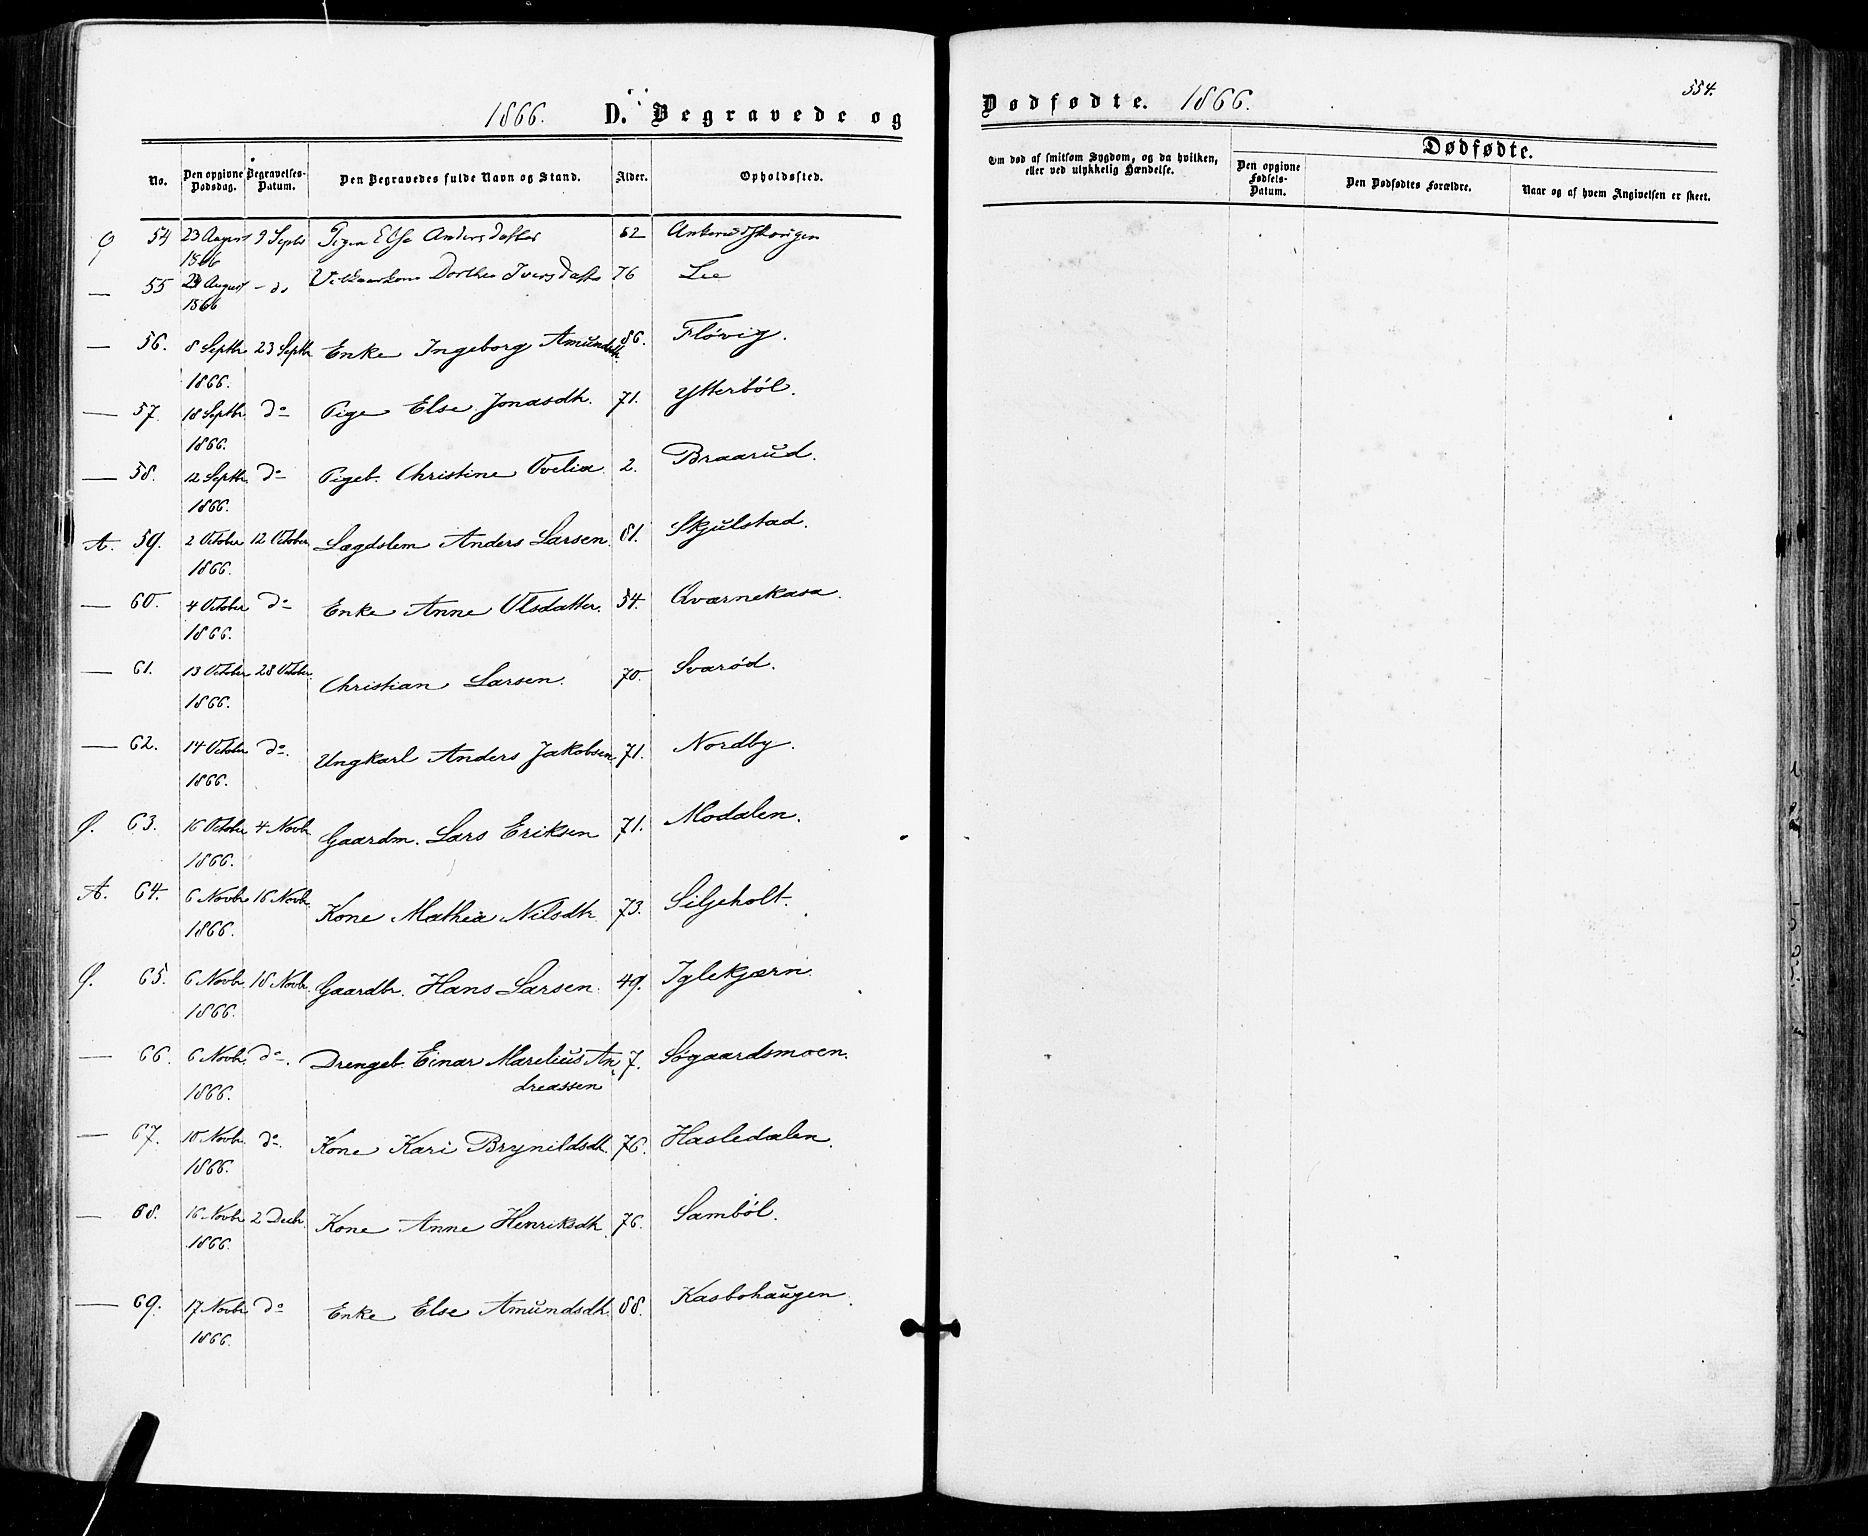 1866. D. Begravede og
Dødfødte. 1866.
554.
No. Den opgivne Dødsdag. Begravelses-Datum. Den Begravedes fulde Navn og Stand. Alder. Opholdssted.
Om død af smitsom Sygdom, og da hvilken, eller ved ulykkelig Hændelse.
Dødfødte.
Den opgivne Fødsels-Datum. Den Dødfødtes Forældre. Naar og af hvem Angivelsen er skeet.
Ø 54 23 August 9 Septbr Pigen Else Andersdatter 62
1866
— 55 29 August - do Dorthea Iversdatter 76 Lee
1866
— 56. 8 Septbr 23 Septbr Enke Ingeborg Amundsdtr. 86. Fløvig.
1866.
— 57. 18 Septbr do Pige Else Jonasdtr. 71. Ytterböl.
1866.
— 58. 12 Septbr. do Pigeb. Christine Ovelia 2. Braarud.
1866.
A. 59. 2 October 12 October Lægdslem Anders Larsen. 81. Skjulstad.
1866.
— 60. 4 October do Enke Anne Olsdatter. 54. Qværnekasa.
1866.
— 61. 13 October 28 October. Christian Larsen. 70. Svarød.
1866.
— 62. 14 October do. Ungkarl Anders Jakobsen 71. Nordby.
1866.
Ø. 63. 16 October 4 Novbr Gaardm. Lars Eriksen 71. Modalen.
1866.
A. 64. 6 Novbr 16 Novbr. Kone Mathia Nilsdtr. 73. Siljeholt.
1866.
Ø. 65. 6 Novbr. 18 Novbr. Gaardbr. Hans Larsen. 49. Iglekjærn.
1866.
— 66. 6 Novbr. do. Drengeb. Einar Marelius An 7. Søgaardsmoen.
1866. dreassen
— 67. 10 Novbr. do. Kone Kari Brynildsdtr. 76. Hasledalen.
1866.
— 68. 16 Novbr 2 Decbr. Kone Anne Henriksdtr. 76. Samböl.
1866.
— 69. 17 Novbr do Enke Else Amundsdtr. 88. Kasbohaugen.
1866.